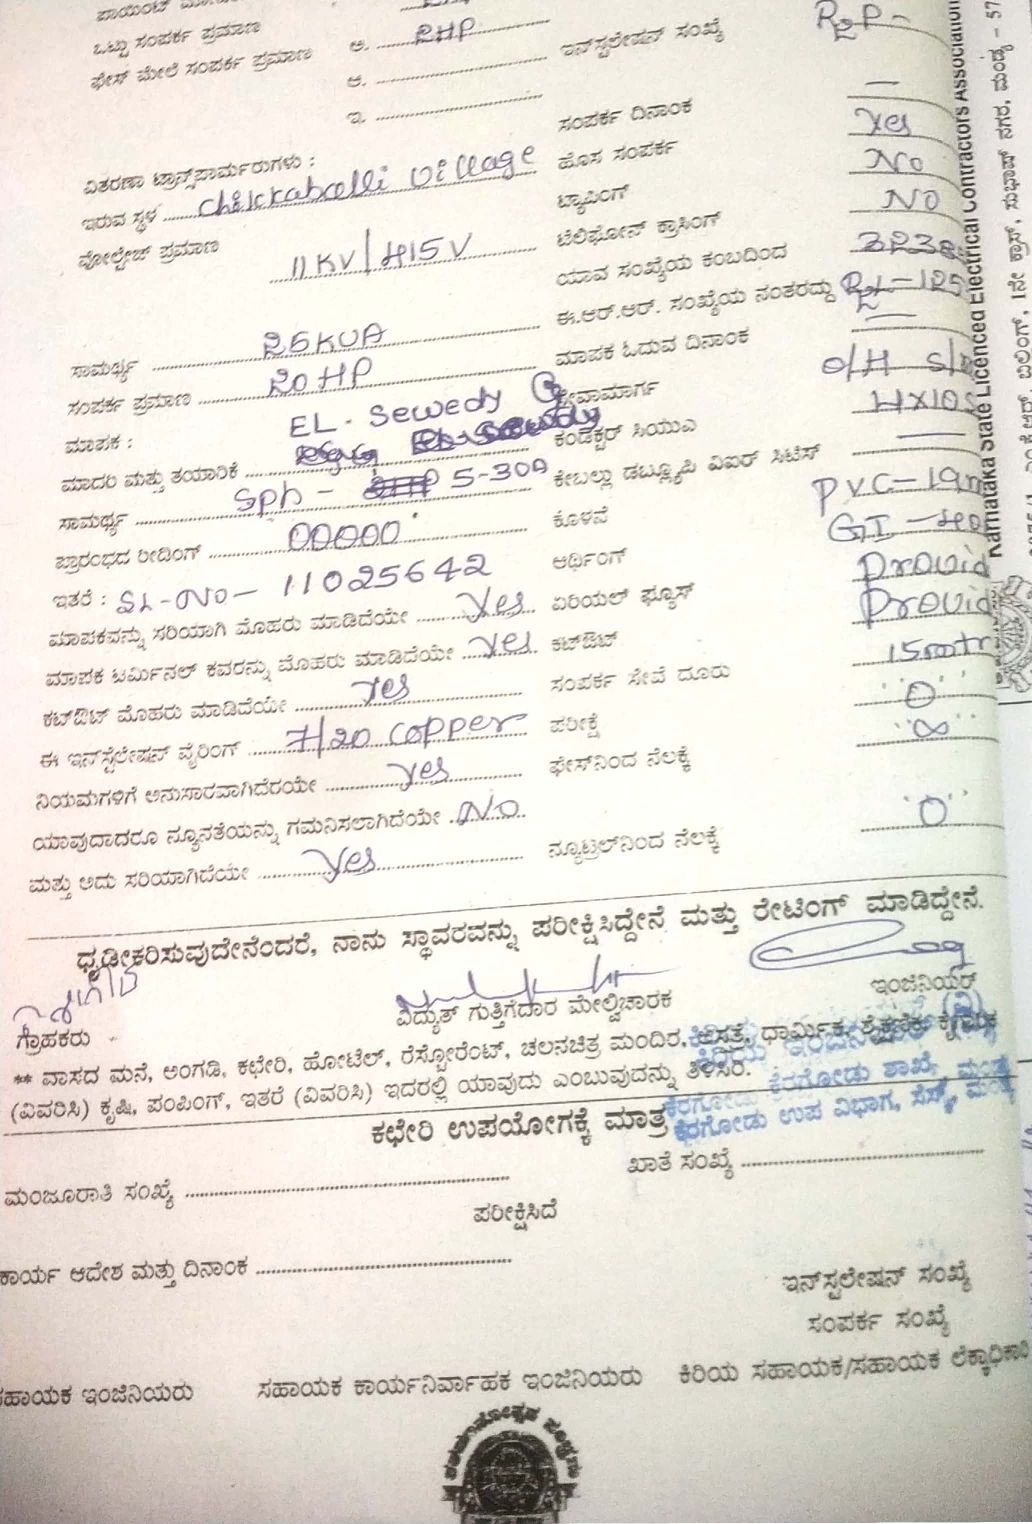 ಒಟ್ಟು ಸಂಪರ್ಕ ಪ್ರಮಾಣ ಅ. 2HP
ಫೇಸ್ ಮೇಲೆ ಸಂಪರ್ಕ ಪ್ರಮಾಣ ಆ. ಇನ್‌ಸ್ಟಲೇಷನ್ ಸಂಖ್ಯೆ R2P-
ಇ. ಸಂಪರ್ಕ ದಿನಾಂಕ —
ವಿತರಣಾ ಟ್ರಾನ್ಸ್‌ಫಾರ್ಮರುಗಳು : ಹೊಸ ಸಂಪರ್ಕ Yes
ಇರುವ ಸ್ಥಳ chikkaballi village ಟ್ಯಾಪಿಂಗ್ No
ವೋಲ್ಟೇಜ್ ಪ್ರಮಾಣ 11KV/415V ಟೆಲಿಫೋನ್ ಕ್ರಾಸಿಂಗ್ NO
ಯಾವ ಸಂಖ್ಯೆಯ ಕಂಬದಿಂದ
ಸಾಮರ್ಥ್ಯ 25KVA ಈ.ಆರ್.ಆರ್. ಸಂಖ್ಯೆಯ ನಂತರದ್ದು
ಸಂಪರ್ಕ ಪ್ರಮಾಣ 20HP ಮಾಪಕ ಓದುವ ದಿನಾಂಕ —
ಮಾಪಕ : EL-Sewedy ಸೇವಾಮಾರ್ಗ O/H
ಮಾದರಿ ಮತ್ತು ತಯಾರಿಕೆ ಕಂಡಕ್ಟರ್ ಸಿಯುಎ
ಸಾಮರ್ಥ್ಯ Sph - 5-30A ಕೇಬಲ್ಲು ಡಬ್ಲ್ಯೂಪಿ ವಿಐಆರ್ ಸಿಟಿಸ್ —
ಪ್ರಾರಂಭದ ರೀಡಿಂಗ್ 00000 ಕೊಳವೆ PVC-19m
ಇತರೆ : SL-No- 11025642 ಆರ್ಥಿಂಗ್ GI-
ಮಾಪಕವನ್ನು ಸರಿಯಾಗಿ ಮೊಹರು ಮಾಡಿದೆಯೇ Yes ಏರಿಯಲ್ ಫ್ಯೂಸ್ Provid
ಮಾಪಕ ಟರ್ಮಿನಲ್ ಕವರನ್ನು ಮೊಹರು ಮಾಡಿದೆಯೇ Yes ಕಟ್‌ಔಟ್ Provid
ಕಟ್‌ಔಟ್ ಮೊಹರು ಮಾಡಿದೆಯೇ Yes ಸಂಪರ್ಕ ಸೇವೆ ದೂರು 15mtr
ಈ ಇನ್‌ಸ್ಟೆಲೇಷನ್ ವೈರಿಂಗ್ 7/20 copper ಪರೀಕ್ಷೆ "0"
ನಿಯಮಗಳಿಗೆ ಅನುಸಾರವಾಗಿದೆರಯೇ Yes ಫೇಸ್‌ನಿಂದ ನೆಲಕ್ಕೆ "∞"
ಯಾವುದಾದರೂ ನ್ಯೂನತೆಯನ್ನು ಗಮನಿಸಲಾಗಿದೆಯೇ NO
ಮತ್ತು ಅದು ಸರಿಯಾಗಿದೆಯೇ Yes ನ್ಯೂಟ್ರಲ್‌ನಿಂದ ನೆಲಕ್ಕೆ "0"
ಧೃಡೀಕರಿಸುವುದೇನೆಂದರೆ, ನಾನು ಸ್ಥಾವರವನ್ನು ಪರೀಕ್ಷಿಸಿದ್ದೇನೆ ಮತ್ತು ರೇಟಿಂಗ್ ಮಾಡಿದ್ದೇನೆ.
ಗ್ರಾಹಕರು ವಿದ್ಯುತ್ ಗುತ್ತಿಗೆದಾರ ಮೇಲ್ವಿಚಾರಕ ಇಂಜಿನಿಯರ್
** ವಾಸದ ಮನೆ, ಅಂಗಡಿ, ಕಛೇರಿ, ಹೋಟೆಲ್, ರೆಸ್ಟೋರೆಂಟ್, ಚಲನಚಿತ್ರ ಮಂದಿರ, ಆಸತ್ರೆ, ಧಾರ್ಮಿಕ, ಶೈಕ್ಷಣಿಕ, ಕೈಗಾರಿಕ
(ವಿವರಿಸಿ) ಕೃಷಿ, ಪಂಪಿಂಗ್, ಇತರೆ (ವಿವರಿಸಿ) ಇದರಲ್ಲಿ ಯಾವುದು ಎಂಬುವುದನ್ನು ತಿಳಿಸಿರಿ.
ಕೆರಗೋಡು ಶಾಖೆ, ಮಂಡ್ಯ
ಕೆರಗೋಡು ಉಪ ವಿಭಾಗ, ಸೆಸ್ಕ್, ಮಂಡ್ಯ
ಕಛೇರಿ ಉಪಯೋಗಕ್ಕೆ ಮಾತ್ರ
ಮಂಜೂರಾತಿ ಸಂಖ್ಯೆ ಖಾತೆ ಸಂಖ್ಯೆ
ಪರೀಕ್ಷಿಸಿದೆ
ಕಾರ್ಯ ಆದೇಶ ಮತ್ತು ದಿನಾಂಕ
ಇನ್‌ಸ್ಟಲೇಷನ್ ಸಂಖ್ಯೆ
ಸಂಪರ್ಕ ಸಂಖ್ಯೆ
ಸಹಾಯಕ ಇಂಜಿನಿಯರು ಸಹಾಯಕ ಕಾರ್ಯನಿರ್ವಾಹಕ ಇಂಜಿನಿಯರು ಕಿರಿಯ ಸಹಾಯಕ/ಸಹಾಯಕ ಲೆಕ್ಕಾಧಿಕಾರಿ
Karnataka State Licenced Electrical Contractors Association
1ನೇ ಕ್ರಾಸ್, ಸುಭಾಷ್ ನಗರ, ಮಂಡ್ಯ - 57